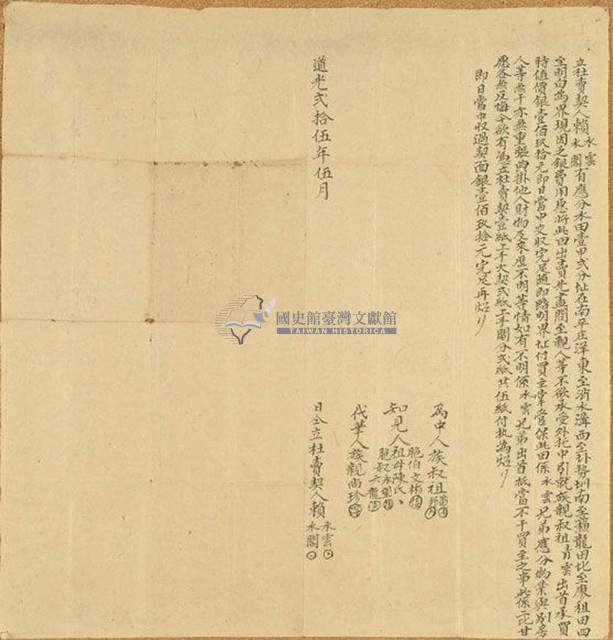 立杜賣契人賴永雲永閣有應分水田壹甲弍分址在南平庄洋東至消水溝西至圳南至龍田北至廖租田四
至明白為界現因乏銀費用愿將此田出賣先盡問至親人等不欲承受外托中引就族親叔祖青雲出首承買
時值價銀壹佰玖拾元即日當中交收完足隨即踏明界址付買主掌管保此田係永雲兄弟應分物業與別房
人等無干亦無重張典掛他人財物及來歷不明等情如有不明係永雲兄弟出首抵當不干買主之事此係二比甘
愿各無反悔今欲有憑立杜賣契壹紙上手大契弍紙上手鬮分弍紙共伍紙付執為炤
即日當中收過契面銀壹佰玖拾元完足再炤
道光弍拾伍年伍月
國史館臺灣文獻館
TAIWAN HISTORICA
為中人族叔祖
胞伯文彬
知見人祖母陳氏
胞叔永
六龍
代筆人族親尚珍
日仝立杜賣契人賴永雲永閣